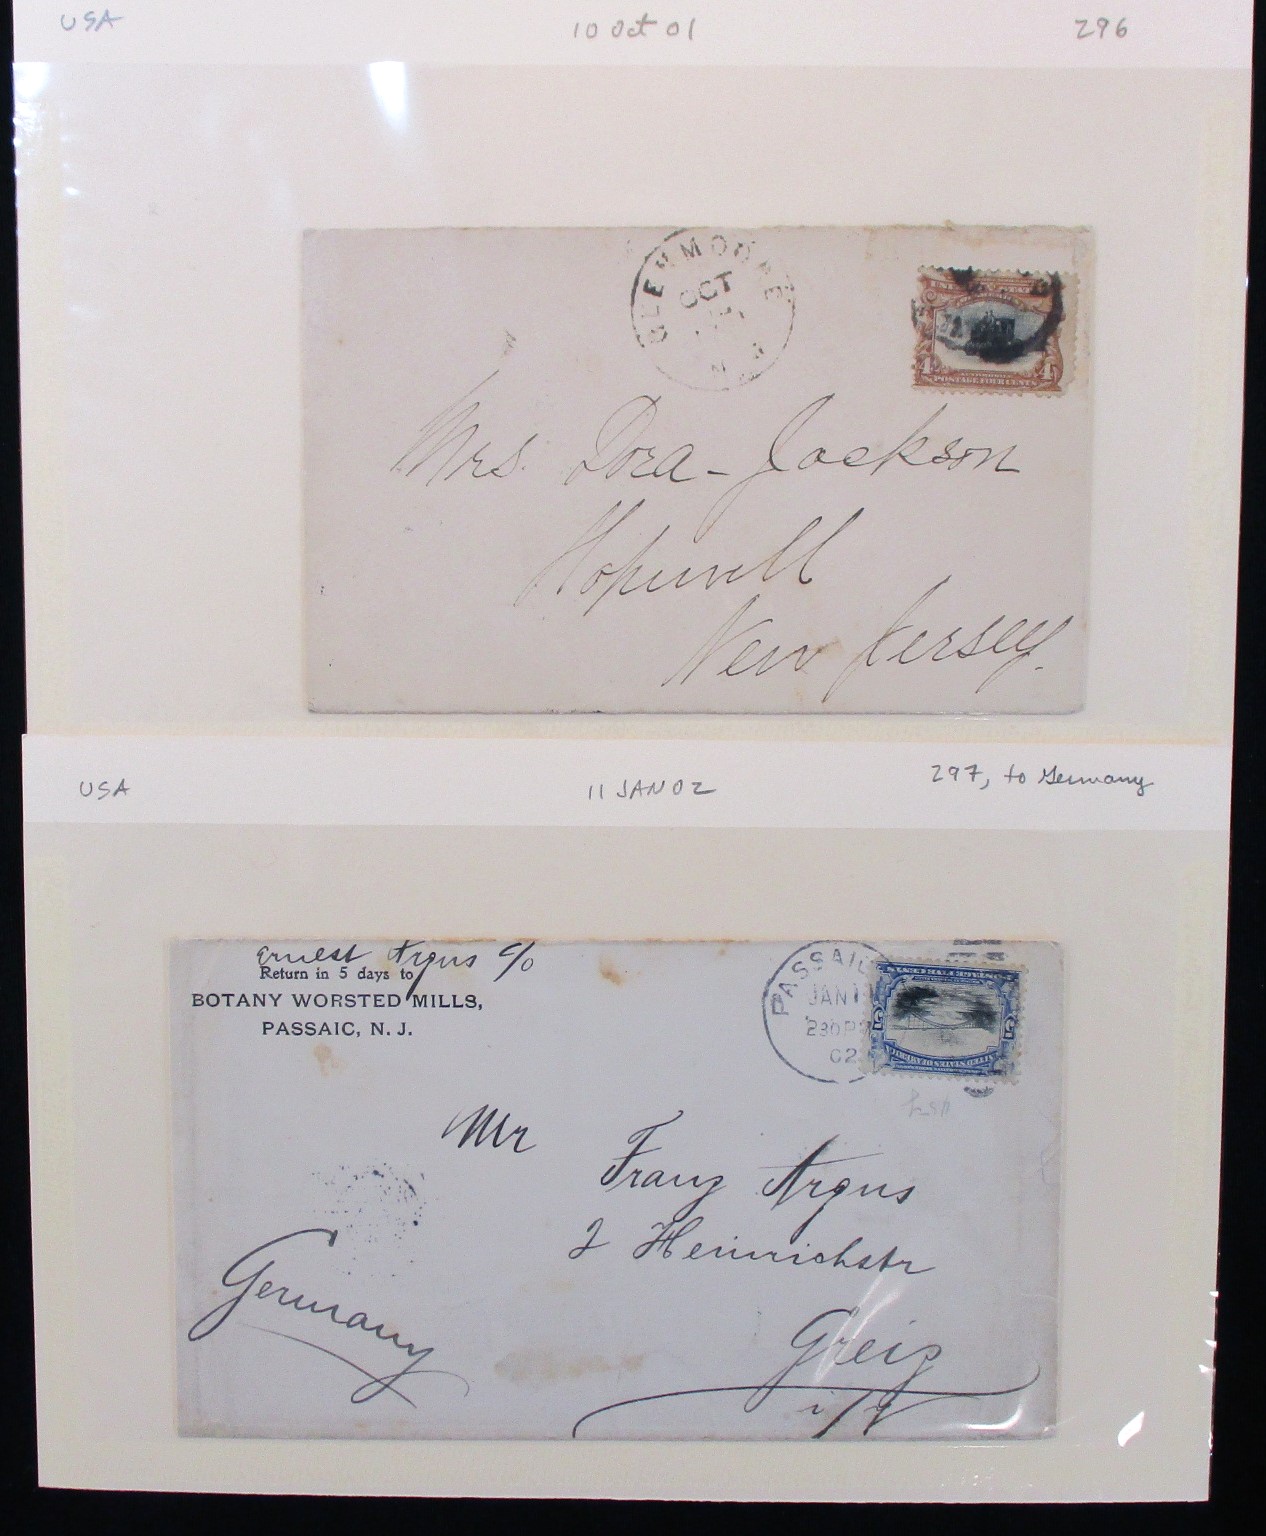 USA 10 Oct 01 296
GLENMOORE
OCT
N
UNITED STATES
4 4
POSTAGE FOUR CENTS
Mrs. Dora Jackson
Hopewell
New Jersey.
USA 11 JAN 02 297, to Germany
Ernest Argus c/o
Return in 5 days to
BOTANY WORSTED MILLS,
PASSAIC, N. J.
PASSAIC
JAN 11
230P
02
POSTAGE FIVE CENTS
5 5
UNITED STATES OF AMERICA
Mr Franz Argus
2 Heinrichstr
Germany
Greiz